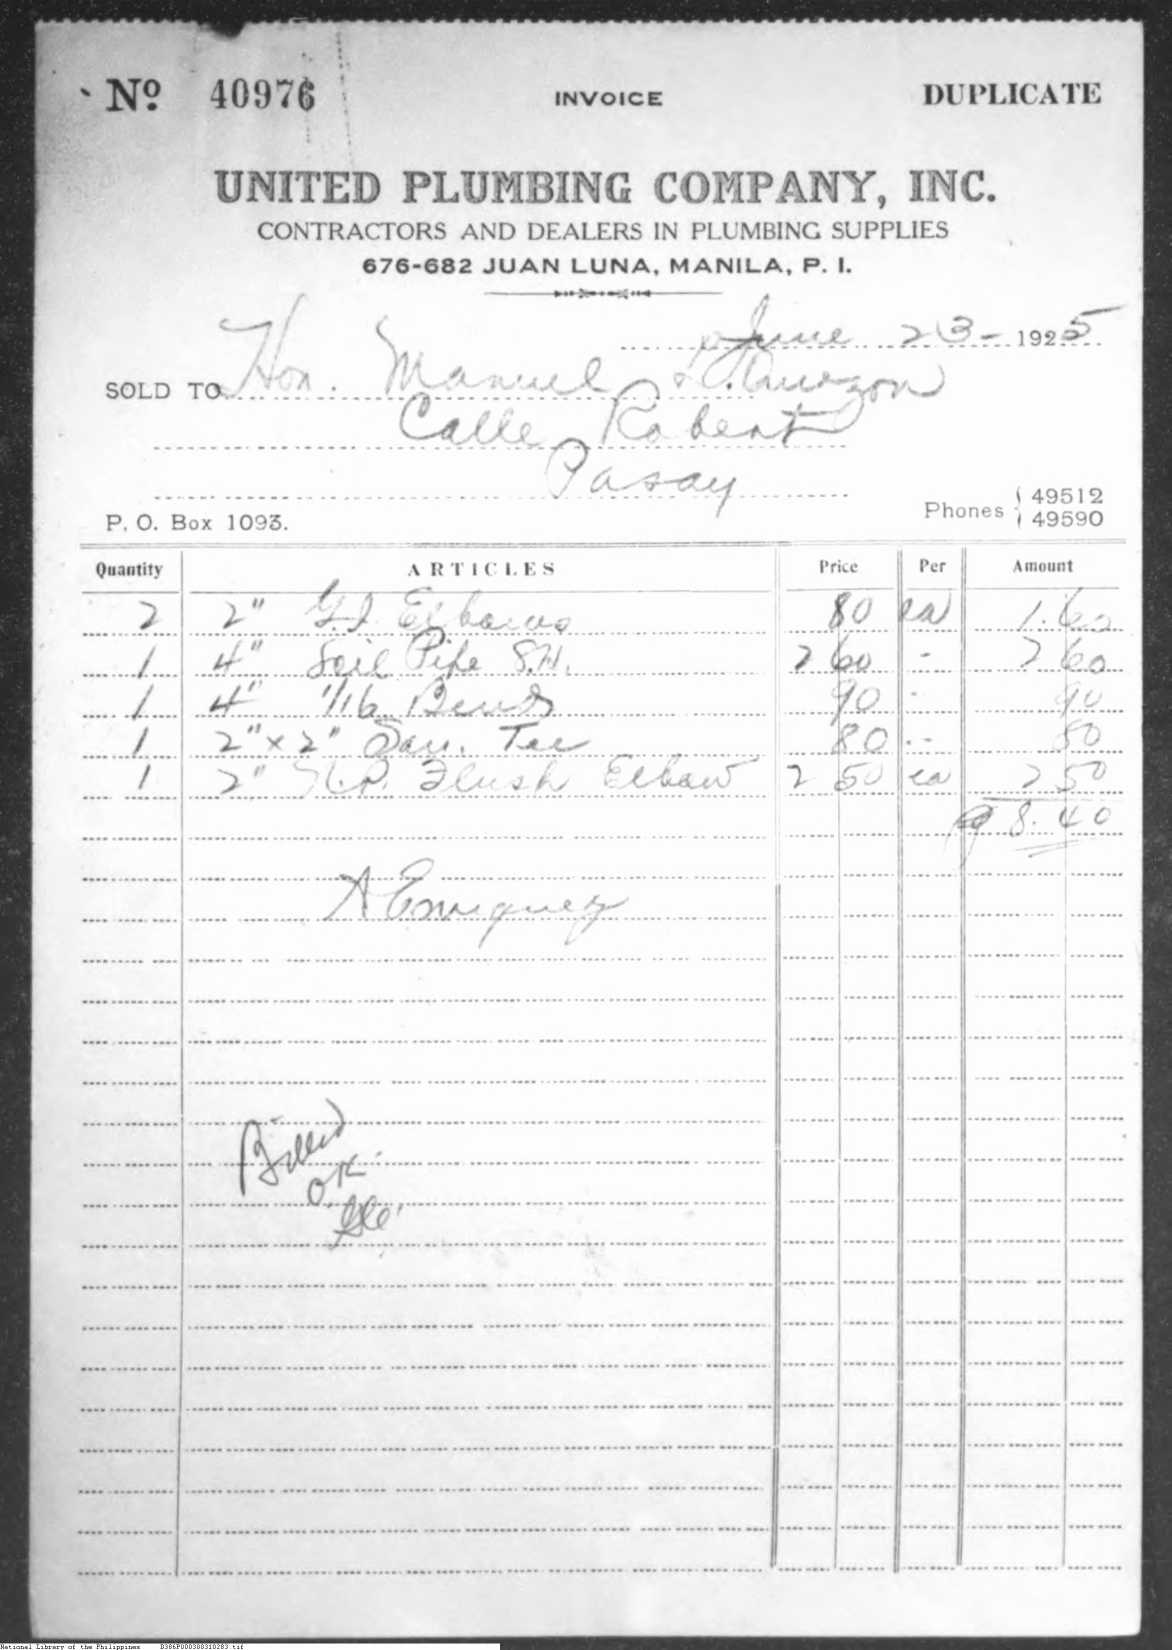 No 40976 INVOICE DUPLICATE
UNITED PLUMBING COMPANY, INC.
CONTRACTORS AND DEALERS IN PLUMBING SUPPLIES
676-682 JUAN LUNA, MANILA, P. I.
June 23- 1925
SOLD TO Hon. Manuel L. Quezon
Calle Robert
Pasay
Phones 49512
49590
P. O. Box 1093.
Quantity ARTICLES Price Per Amount
2 2" G.I. Elbows 80 ea 1.60
1 4" Soil Pipe S.H. 2 60 - 2 60
1 4" 1/16 Bend 90 - 90
1 2" x 2" San. Tee 80 -- 80
1 2" Flush Elbow 2 50 ea 2 50
₱ 8.40
A Enriquez
Billed
OK
National Library of the Philippines B386P000300310283.tif